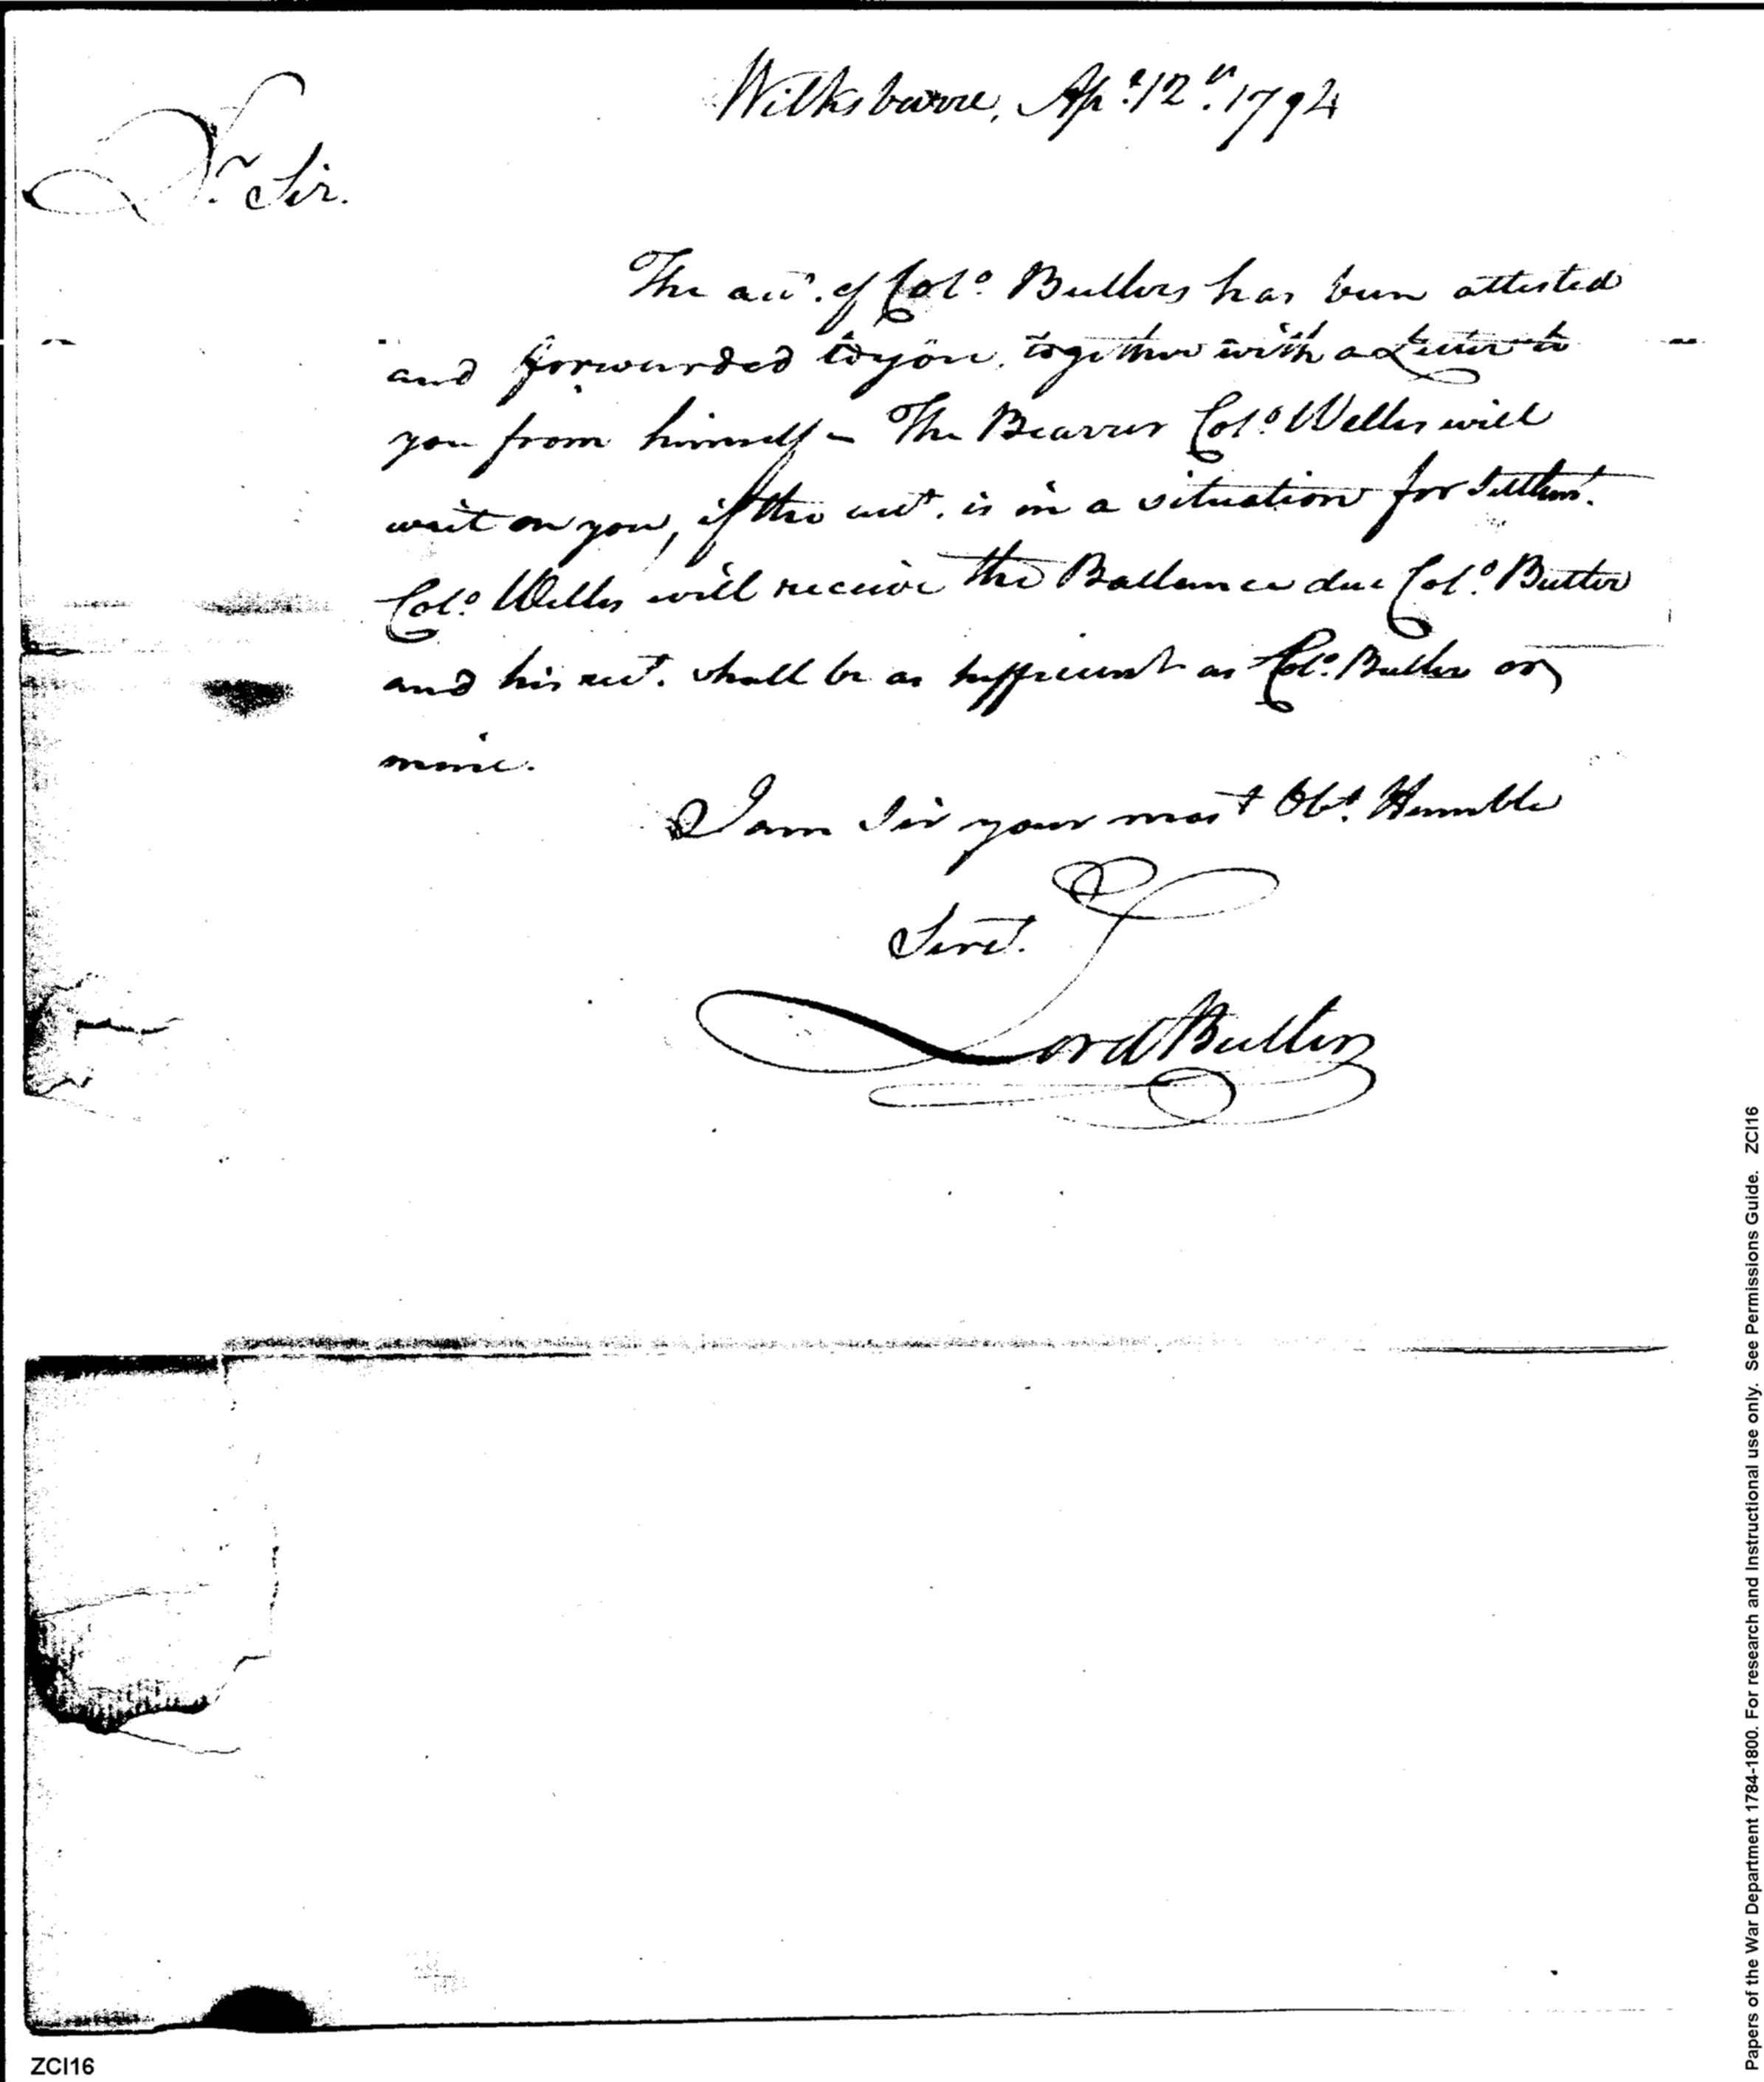 Wilksbarre, Apl. 12th. 1794
Dr. Sir.
The acct. of Colo. Butlers has been attested
and forwarded to you, together with a Letter to
you from himself - The Bearrer Colo. Welles will
wait on you, if the acct. is in a situation for Settlemt.
Colo. Welles will receive the Ballance due Colo. Butler
and his rect. shall be as sufficient as Colo. Butler or
mine.
I am Sir your most Obt. Humble
Servt.
Lord Butler
ZCI16
Papers of the War Department 1784-1800. For research and Instructional use only. See Permissions Guide. ZCI16